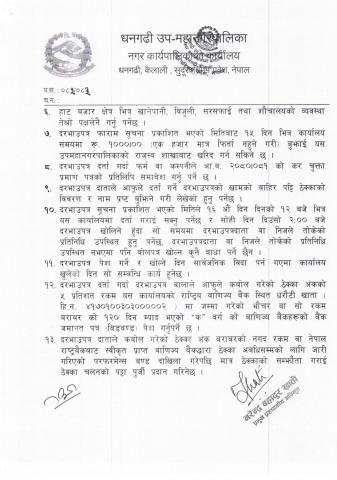 धनगढी उप-महानगरपालिका
नगर कार्यपालिकाको कार्यालय
धनगढी, कैलाली, सुदूरपश्चिम प्रदेश, नेपाल
प.सं. : ०८२/०८३
च.नं. :
६. हाट बजार क्षेत्र भित्र खानेपानी, बिजुली, सरसफाई तथा शौचालयको व्यवस्था
पक्षलेनै गर्नु पर्नेछ ।
७. दरभाउपत्र फाराम सूचना प्रकाशित भएको मितिबाट १५ दिन भित्र कार्यालय
समयमा रू. १०००।०० (एक हजार मात्र फिर्ता नहुने गरी) बुझाई यस
उपमहानगरपालिकाको राजस्व शाखाबाट खरिद गर्न सकिने छ ।
८. दरभाउपत्र दर्ता गर्दा फर्म वा कम्पनीले आ.व. २०८०।०८१ को कर चुक्ता
प्रमाण पत्रको प्रतिलिपि समावेश गर्नु पर्ने छ ।
९. दरभाउपत्र दाताले आफुले दर्ता गर्ने दरभाउपत्रको खामको बाहिर पट्टि ठेक्काको
विवरण र नाम प्रष्ट बुझिने गरी लेखेको हुनु पर्नेछ ।
१०. दरभाउपत्र सूचना प्रकाशित भएको मितिले १६ औं दिन दिनको १२ बजे भित्र
यस कार्यालयमा दर्ता गराई सक्नु पर्नेछ र सोही दिन दिउँसो २:०० बजे
दरभाउपत्र खोलिने हुँदा सो समयमा दरभाउपत्रदाता वा निजले तोकेको
प्रतिनिधि उपस्थित हुनु पर्नेछ, दरभाउपत्रदाता वा निजले तोकेको प्रतिनिधि
उपस्थित नभएमा पनि बोलपत्र खोल्न कुनै बाधा पर्ने छैन ।
११. दरभाउपत्र पेश गर्ने र खोल्ने दिन सार्वजनिक विदा पर्न गएमा कार्यालय
खुलेको दिन सो सम्बन्धि कार्य हुनेछ ।
१२. दरभाउपत्र दर्ता गर्दा दरभाउपत्र वालाले आफुले कबोल गरेको ठेक्का अंकको
५ प्रतिशत रकम यस कार्यालयको राष्ट्रिय वाणिज्य बैंक स्थित धरौटी खाता ।
हि.नं. ४१७०१००३०३०००००२ । मा जम्मा गरेको भौचर वा सो रकम
बराबर को १२० दिन म्याद भएको "क" वर्ग को वाणिज्य बैंकहरूको बैंक
जमानत पत्र (विडवण्ड) पेश गर्नुपर्ने छ ।
१३. दरभाउपत्र दाताले कबोल गरेको ठेक्का अंक बराबरको नगद रकम वा नेपाल
राष्ट्रबैंकबाट स्वीकृत प्राप्त वाणिज्य बैंकद्वारा ठेक्का अवधिसम्मको लागि जारी
गरिएको परफरमेन्स बण्ड दाखिला गरेपछि मात्र ठेक्काको सम्झौता गराई
ठेक्का चलनको पट्टा पुर्जी प्रदान गरिनेछ ।
नरेन्द्र बहादुर खाती
प्रमुख प्रशासकीय अधिकृत